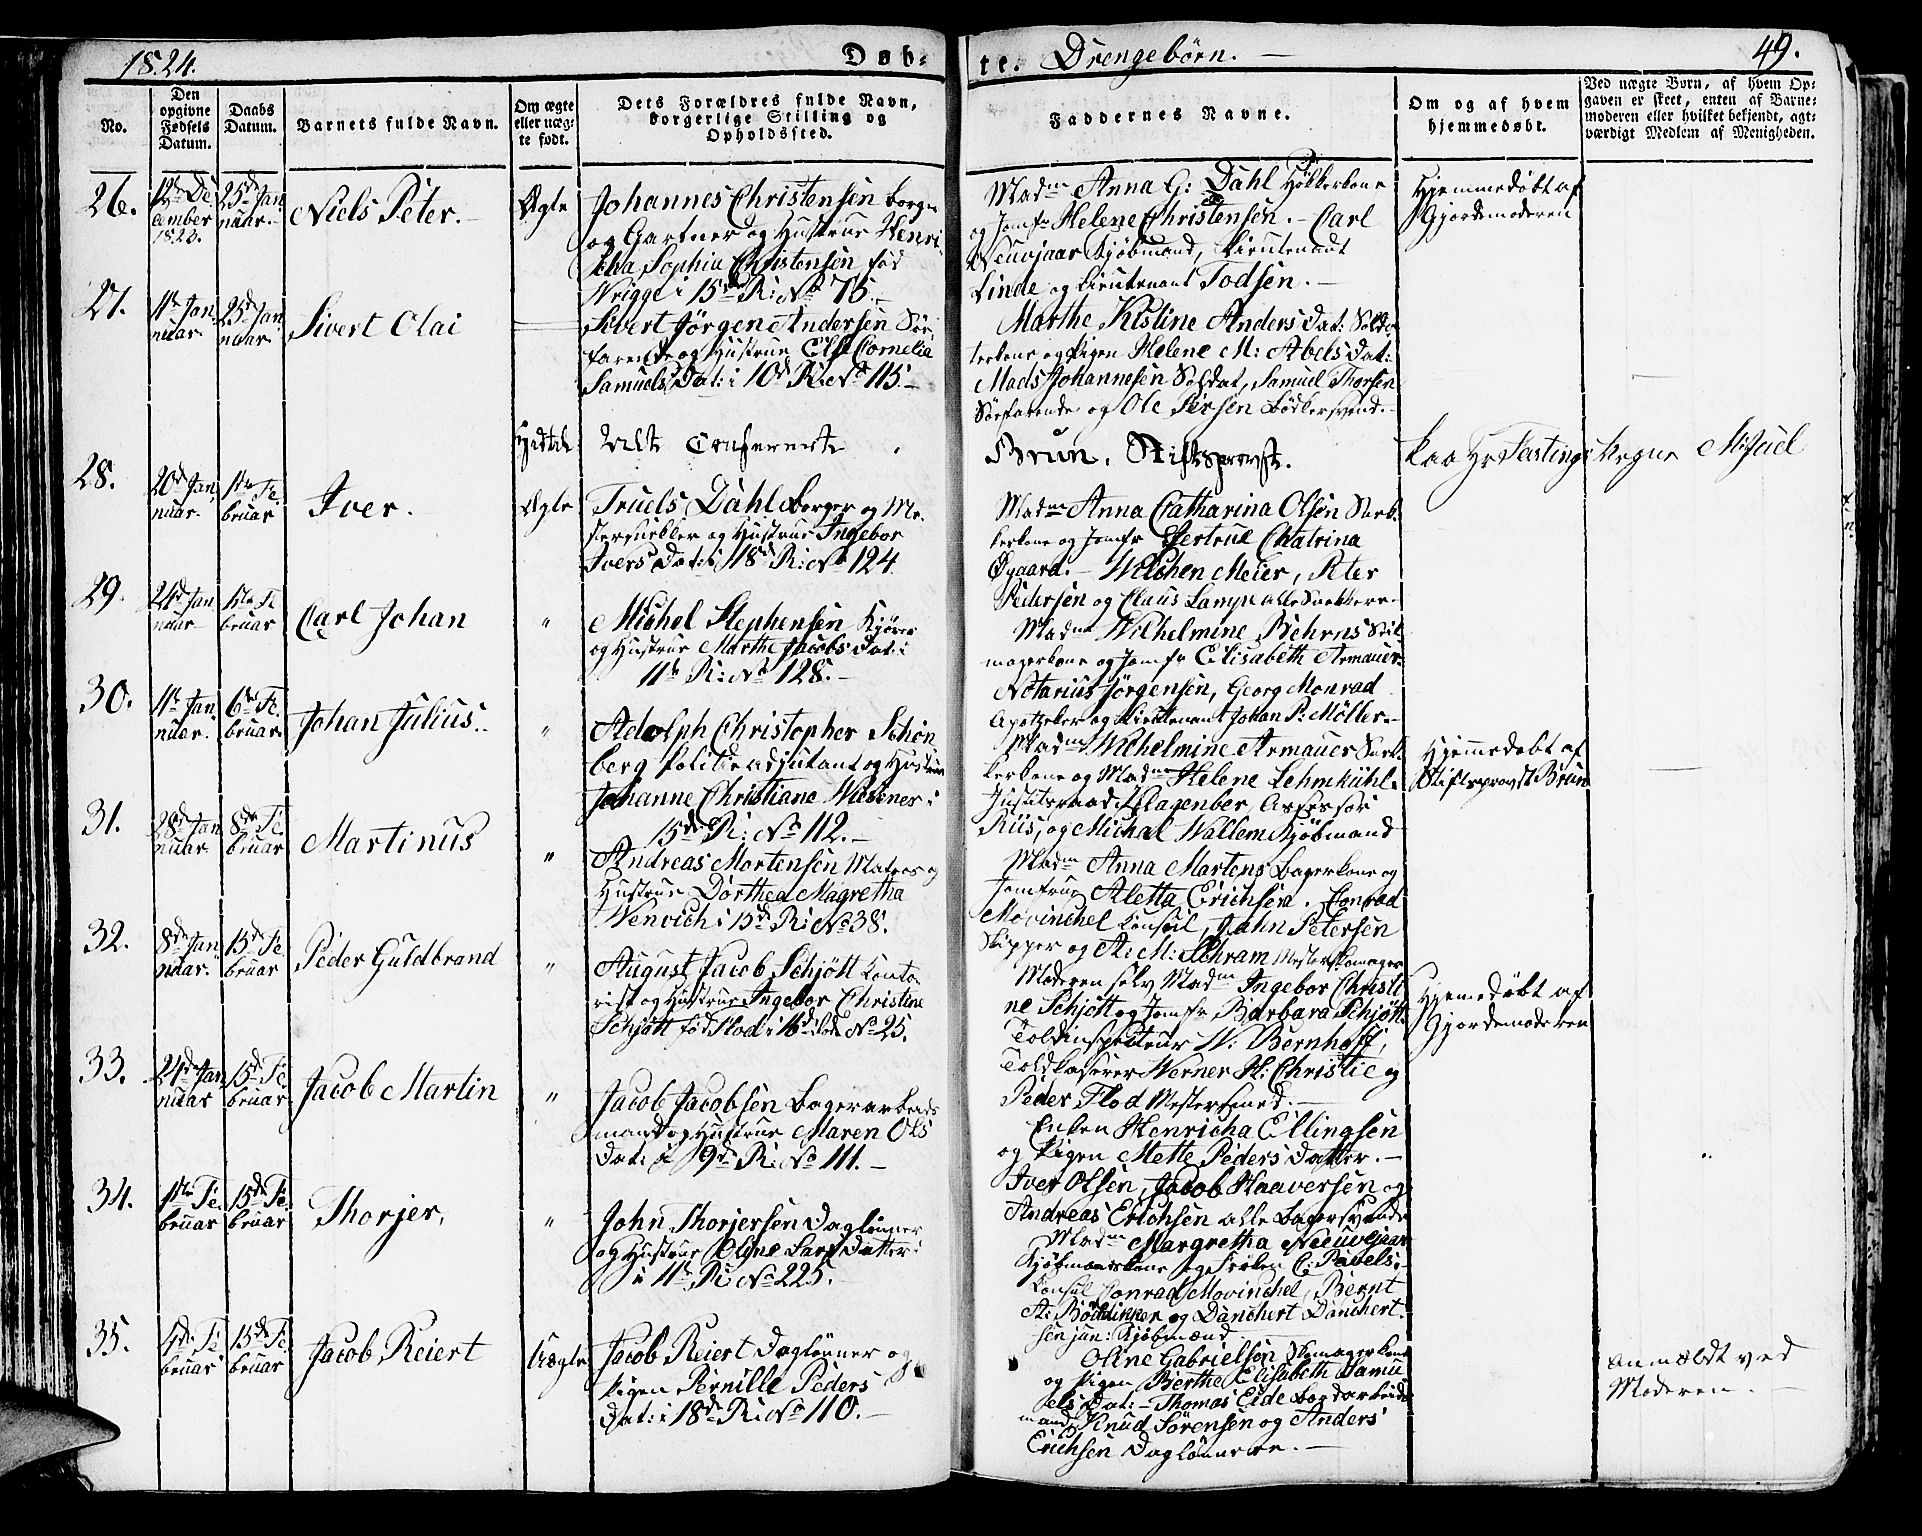 1824.
Døb-
te. Drengebörn. —
49.
No.
Den opgivne Fødsels Datum.
Daabs Datum.
Barnets fulde Navn.
Om ægte eller uægte født.
Dets Forældres fulde Navn, borgerlige Stilling og Opholdssted.
Faddernes Navne.
Om og af hvem hjemmedøbt.
Ved uægte Børn, af hvem Opgaven er skeet, enten af Barnemoderen eller hvilket bekjendt, agtværdigt Medlem af Menigheden.
26.
12te De
cember
1823.
25de Jan
nuar.
Niels Peter. —
Ægte
Johannes Christensen Borger
og Gartner og Hustrue Henri-
cha Sophia Christensen fød
Wrigge i 15de R: No 75. —
Madm Anna G: Dahl Høkkerkone
og Jomfr Helene Christensen. — Carl
Neuvjaar Kjöbmand, Lieutenant
Linde og Lieutenant Todsen. —
Hjemmedöbt af
Gjordemoderen
27.
11te Jan
nuar.
25de Jan
nuar.
Sivert Olai
Sivert Jörgen Andersen Söe
farende og Hustrue Else Cornelia
Samuels Dat: i 10de R: No 115. —
Marthe Kistine Anders Dat: Solda-
terkone og Pigen Helene M: Abels Dat:
Mads Johannesen Soldat, Samuel Thorsen
Söefarende og Ole Iversen Bödkersvend. —
Rigtig Conferert
Brun, Stiftsprovst.
28.
20de Jan
nuar.
1ste Fe
bruar
Iver. —
Ægte
Truels Dahl Borger og Me-
stersnedker og Hustrue Ingebor
Ivers Dat: i 18de R: No 124
Madm Anna Catharina Olsen Sned-
kerkone og Jomfr Gertrue Chatrina
Øgaard. — Wilchen Meier, Peter
Pedersen og Claus Lampe alle Snedkere —
29.
21de Jan
nuar
1ste Fe
bruar
Carl Johan
"
Michel Stephensen Kjörer
og Hustrue Marthe Jacobs Dat: i
11te R: No 128. —
Madm Wilhelmine Behrns
magerkone og Jomfr Elisabeth Armauer.
Notarius Jörgensen, Georg Monrad
Apotheker og Lieutenant Johan P: Möller. —
30.
11te Jan
nuar.
6te Fe
bruar.
Johan Julius.
"
Adolph Christopher Schön
berg Politieadjutant og Hustrue
Johanne Christiane Wiesener i
15de R: No 112. —
Madm Wilhelmine Armauer
kerkone og Madme Helene Lehmkühl.
Justitsraad Klagenber, Assessor
Riis, og Michal Wallem Kjöbmand
Hjemmedöbt af
Stiftsprovst Brun
31.
28de Jan
nuar.
8de Fe
bruar
Martinus
"
Andreas Mortensen Matros og
Hustrue Dorthea Magretha
Wenrich i 15de R: No 38.
Madm Anna Martens Bagerkone og
Jomfrue Aletta Erichsen. Conrad
Movinchel Konsul, Jahn Petersen
Skipper og A: M: Schram Mesterskomager
32.
8de Jan
nuar.
15de Fe
bruar
Peder Guldbrand
"
August Jacob Schjött Konto-
rist og Hustrue Ingebor Christine
Schjött fød Flod i 16de No 25.
Moderen selv Madm Ingebor Christi
ne Schjött og Jomfr Barbara Schjött.
Toldinspecteur W: Bernhoft,
Toldkaserer Werner H: Christie og
Peder Flod Mestersmed. —
Hjemedöbt af
Gjordemoderen
33.
24de Jan
nuar
15de Fe
bruar.
Jacob Martin
"
Jacob Jacobsen Bagerarbeids
mand og Hustrue Maren Ols
Dat: i 9de R: No 111. —
Enken Henricha Ellingsen
og Pigen Mette Peders Datter. —
Iver Olsen, Jacob Haaversen og
Andreas Erichsen alle Bagersvende
34.
1ste Fe
bruar
15de Fe
bruar
Thorjer,
"
John Thorjersen Daglönner
og Hustrue Oline Lars Datter
i 11te R: No 225. —
Madm Margretha Neuvejaar
Kjöbmandskone og Fröken C: Pavels.
Konsul Conrad Movinchel, Bernt
A: Böchmann og Danchert Danchert
sen jun: Kjöbmænd
35.
4de Fe
bruar
15de Fe
bruar
Jacob Reiert
Uægte
Jacob Reiert Daglönner og
Pigen Pernille Peders
Dat: i 18de R: No 110. —
Oline Gabrielson Skomagerkone
og Pigen Berthe Elisabeth Samu
els Dat: — Thomas Eide Bordarbeids
mand, Knud Sörensen og Anders
Erichsen Daglönnere. —
Anmældt ved
Moderen. —